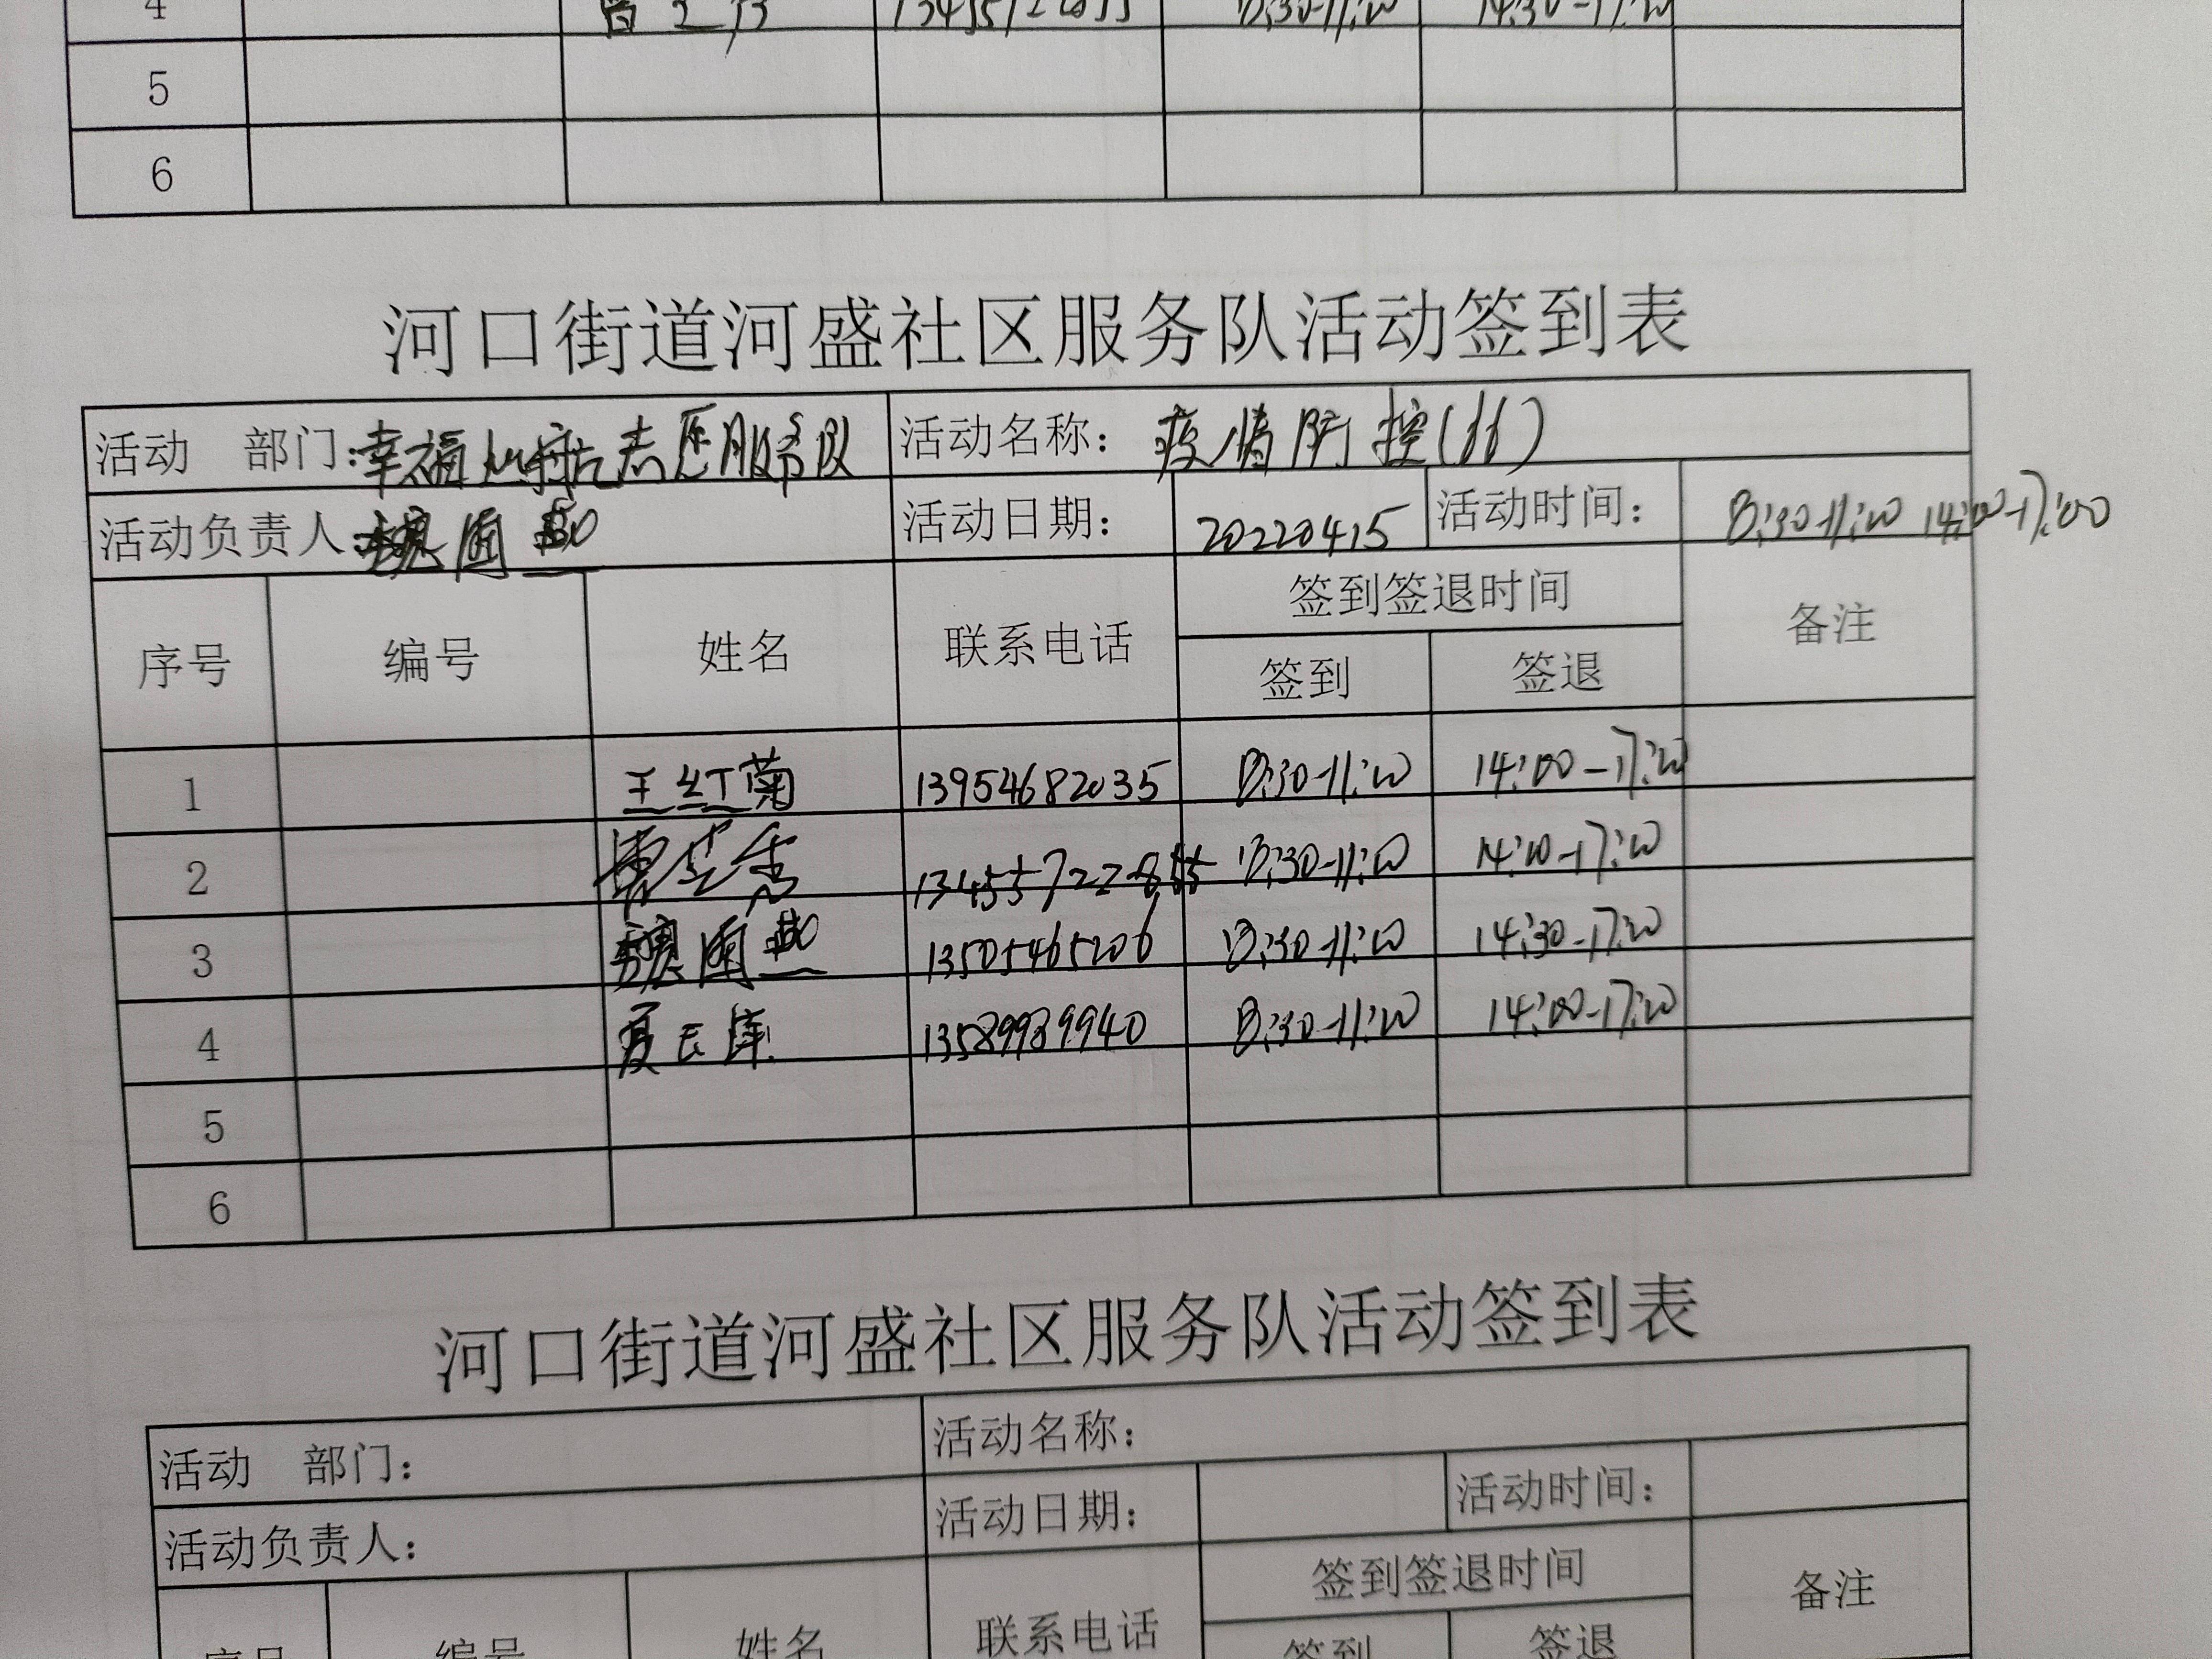 4 14:30-17:00
5
6
河口街道河盛社区服务队活动签到表
活动 部门:幸福 志愿服务队 活动名称: 疫情防控(11)
活动负责人:魏国燕 活动日期: 20220415 活动时间: 8:30-11:00 14:00-17:00
序号 编号 姓名 联系电话 签到签退时间 备注
签到 签退
1 王红菊 13954682035 8:30-11:00 14:00-17:00
2 8:30-11:00 14:00-17:00
3 魏国燕 13505465206 8:30-11:00 14:30-17:00
4 13589989940 8:30-11:00 14:00-17:00
5
6
河口街道河盛社区服务队活动签到表
活动 部门: 活动名称:
活动负责人: 活动日期: 活动时间:
序号 编号 姓名 联系电话 签到签退时间 备注
签到 签退